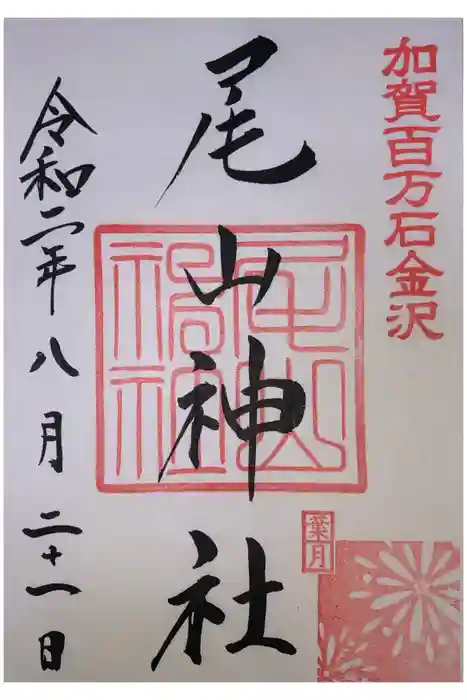 加賀百万石金沢
尾山神社
葉月
令和二年八月二十一日